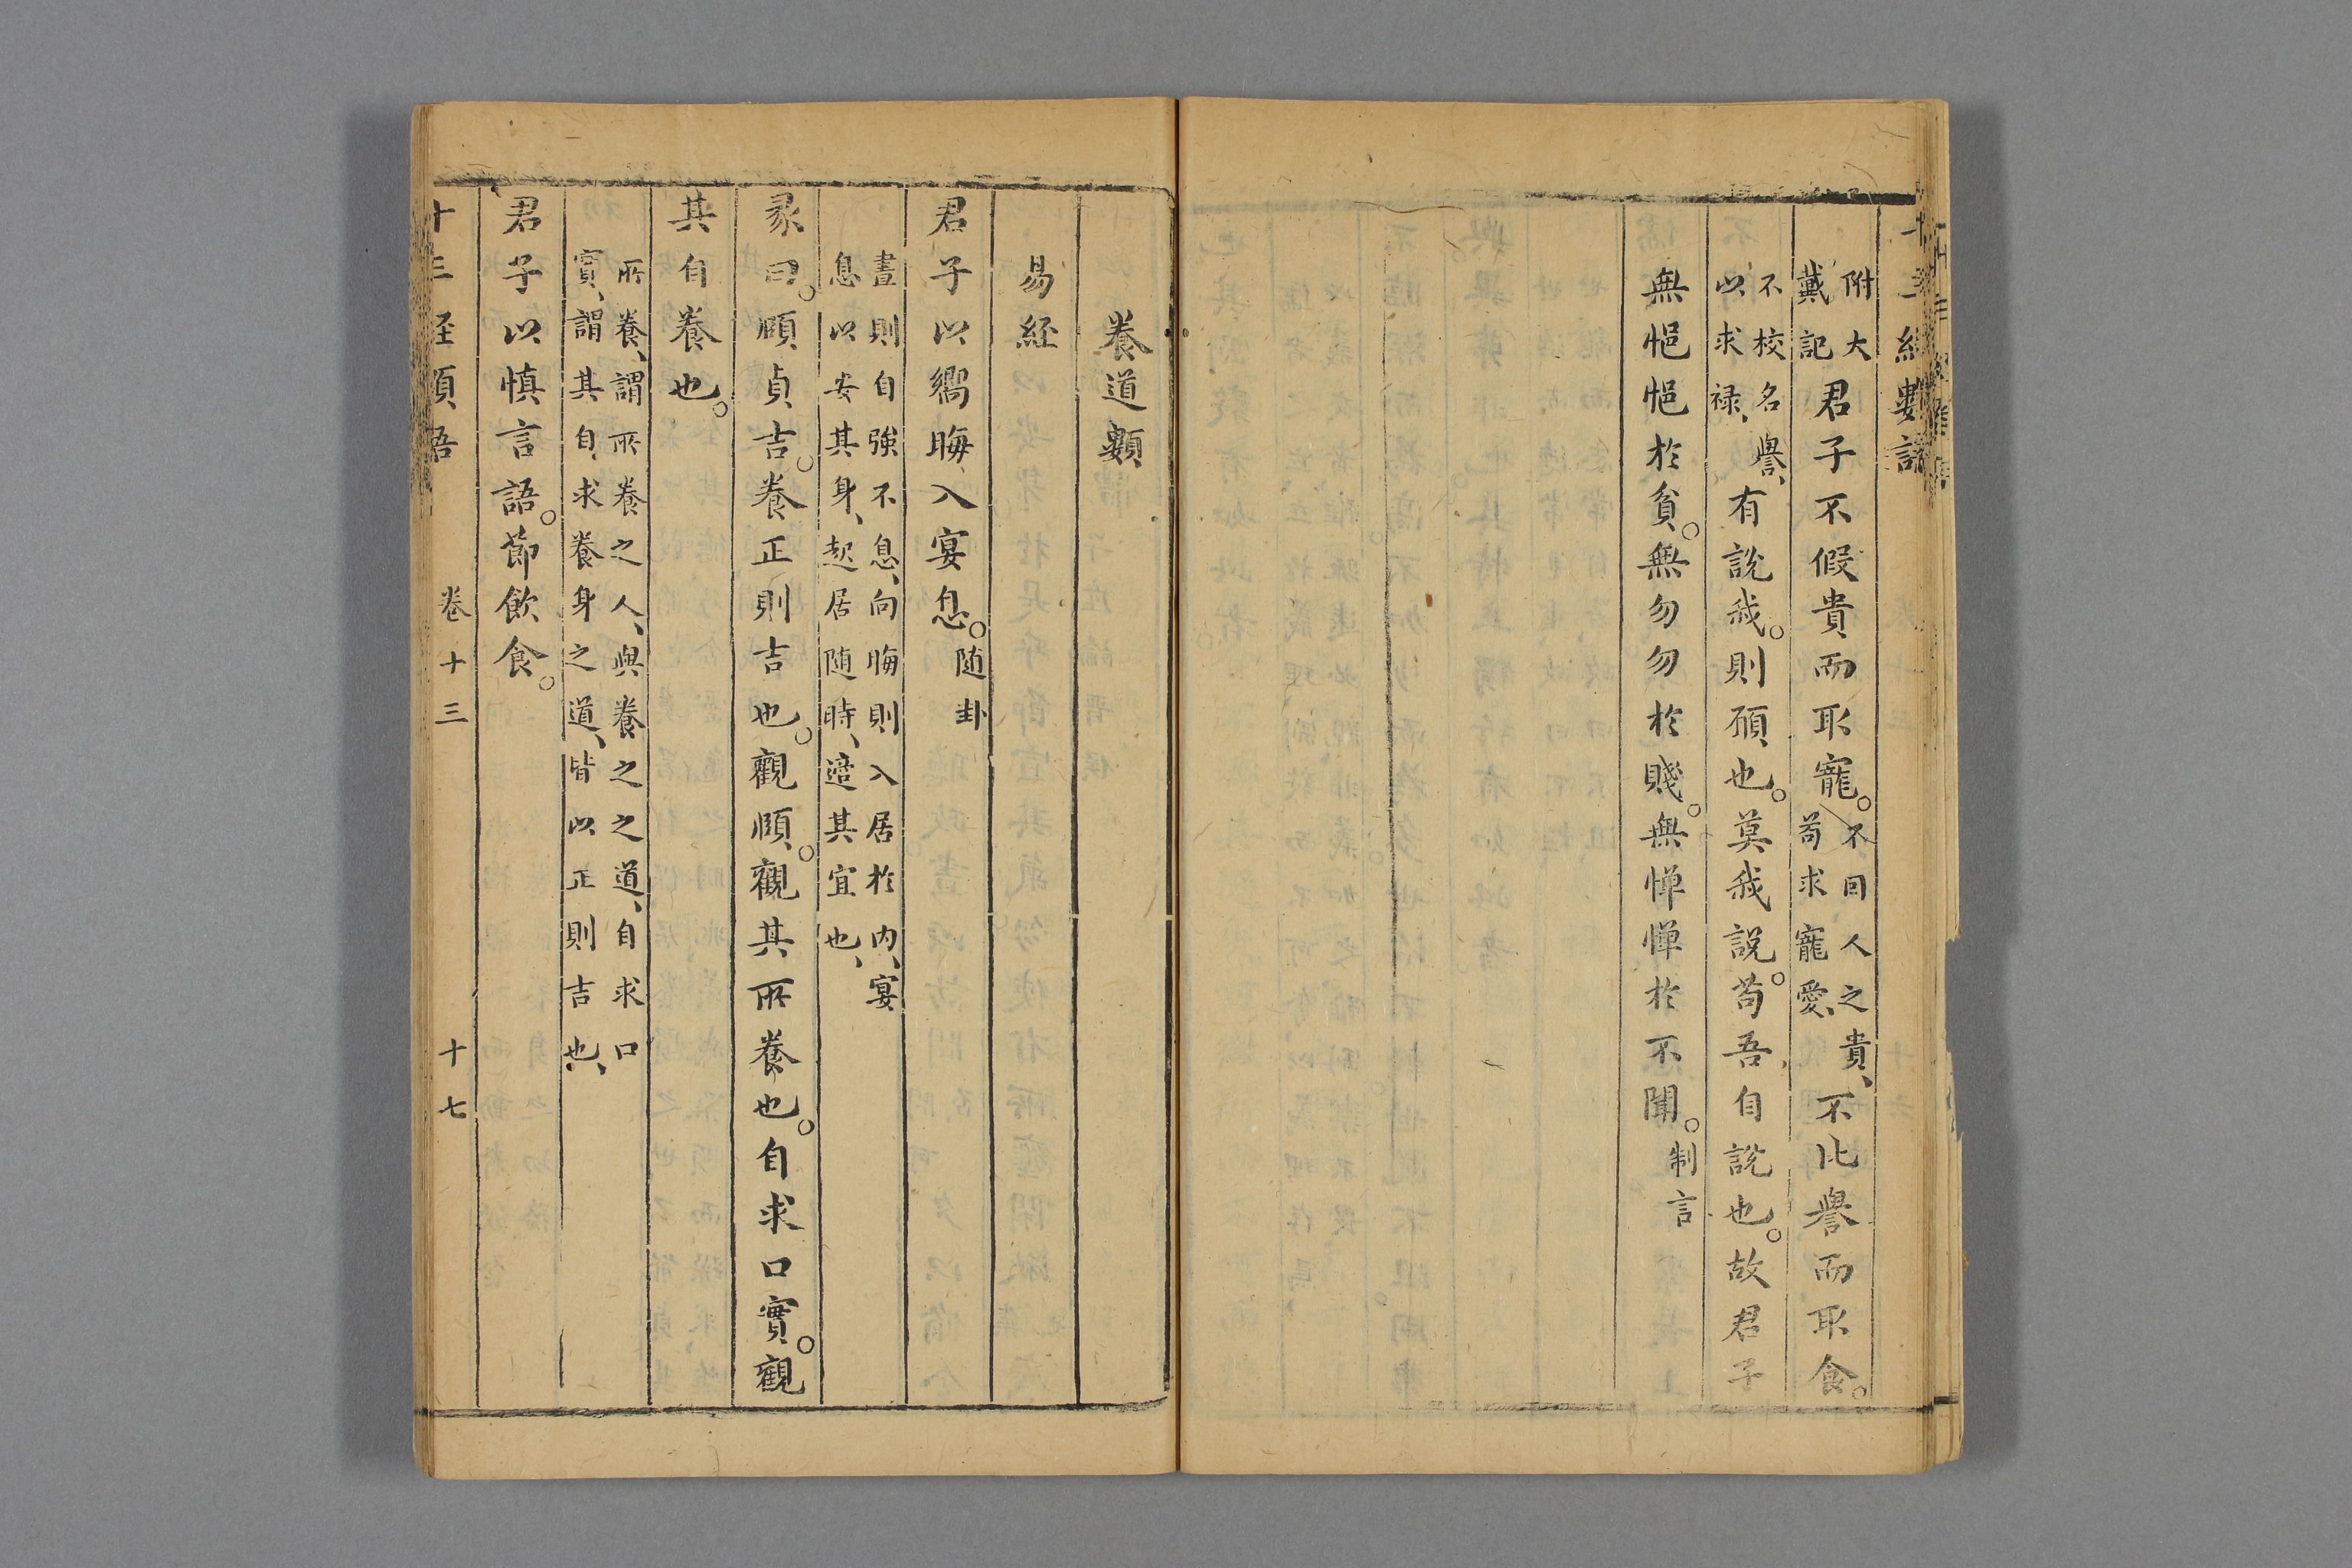 附大戴記君子不假貴而取寵。不因人之貴、苟求寵愛、不比譽而取食。
不校名譽、以求禄、有說我。則頋也。莫我說。苟吾自說也。故君子
無悒悒於貧。無勿勿於賤。無憚憚於不聞。制言
養道類
易経
君子以嚮晦、入宴息。随卦
晝則自強不息、向晦則入居於内、宴
息以安其身、起居随時、適其宜也、
彖曰。頤貞吉。養正則吉也。觀頤。觀其所養也。自求口實。觀
其自養也。
所養、謂所養之人、與養之之道、自求口
實、謂其自求養身之道、皆以正則吉也、
君子以慎言語。節飲食。
十三経 卷十三 十七